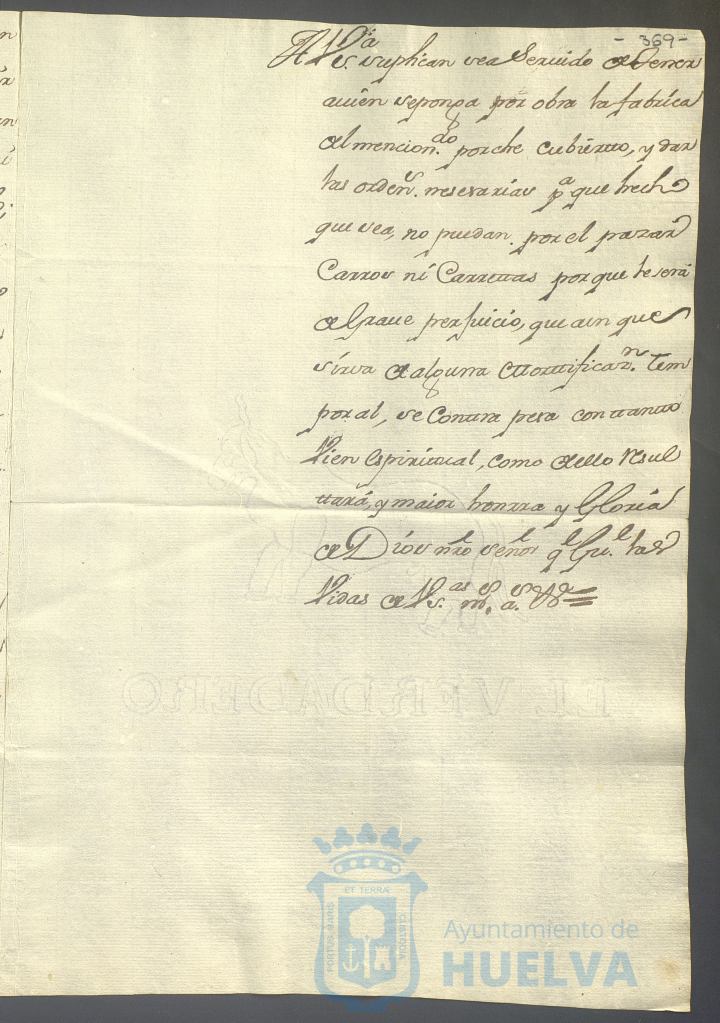 - 369 -
A V.S.ª suplican sea Servido de tener
avien se ponga por obra la fabrica
del mencion.do porche cubierto, y dar
las orden.s nesesarias p.a que hecho
que sea, no puedan por el pazar
Carros ni Carretas por que le será
de Grave perjuicio, que aun que
sirva de alguna Mortificaz.n tem
poral, se Contra pesa con tanto
bien Espiritual, como dello Resul
tará, y maior honrra y Gloria
de Dios nro señor q.e Gu.e las
Vidas de V.S.as m.s a.s
EL VERDADERO
PORTUS MARIS
ET TERRÆ
CUSTODIA
Ayuntamiento de
HUELVA